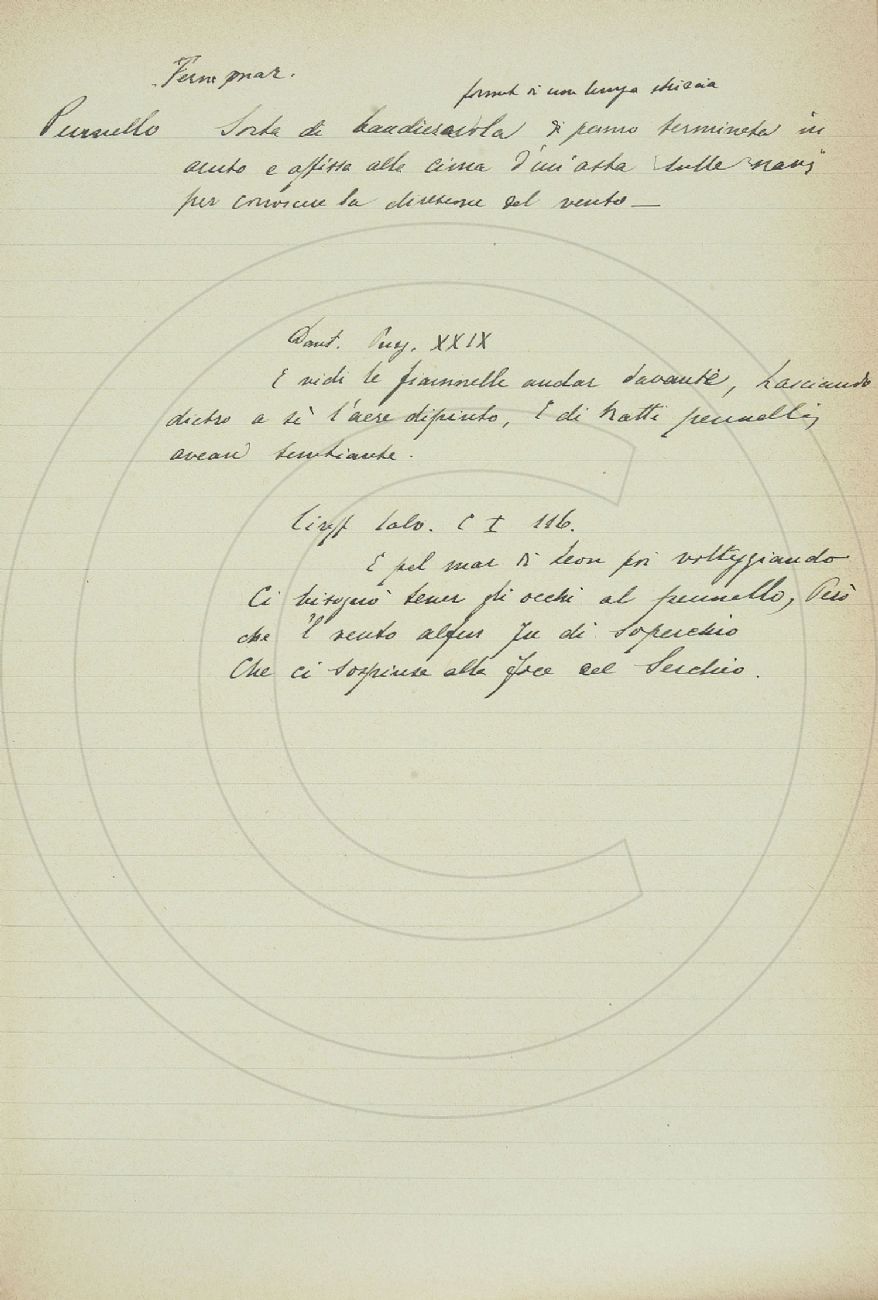 Term mar.
format di una lunga striscia
Pennello Sorta di banderuola di panno terminata in
acuto e affissa alla cima d'un'asta sulle navi
per conoscere la direzione del vento —
Dant. Purg. XXIX
E vidi le fiammelle andar davante, Lasciando
dietro a sè l'aere dipinto, E di tratti pennelli
avean sembiante.
Ciriff Calv. C I 116.
E pel mar di Leon poi volteggiando
Ci bisognò tener gli occhi al pennello, Però
che 'l vento alfin fu di soperchio
Che ci sospinse alla foce del Serchio.